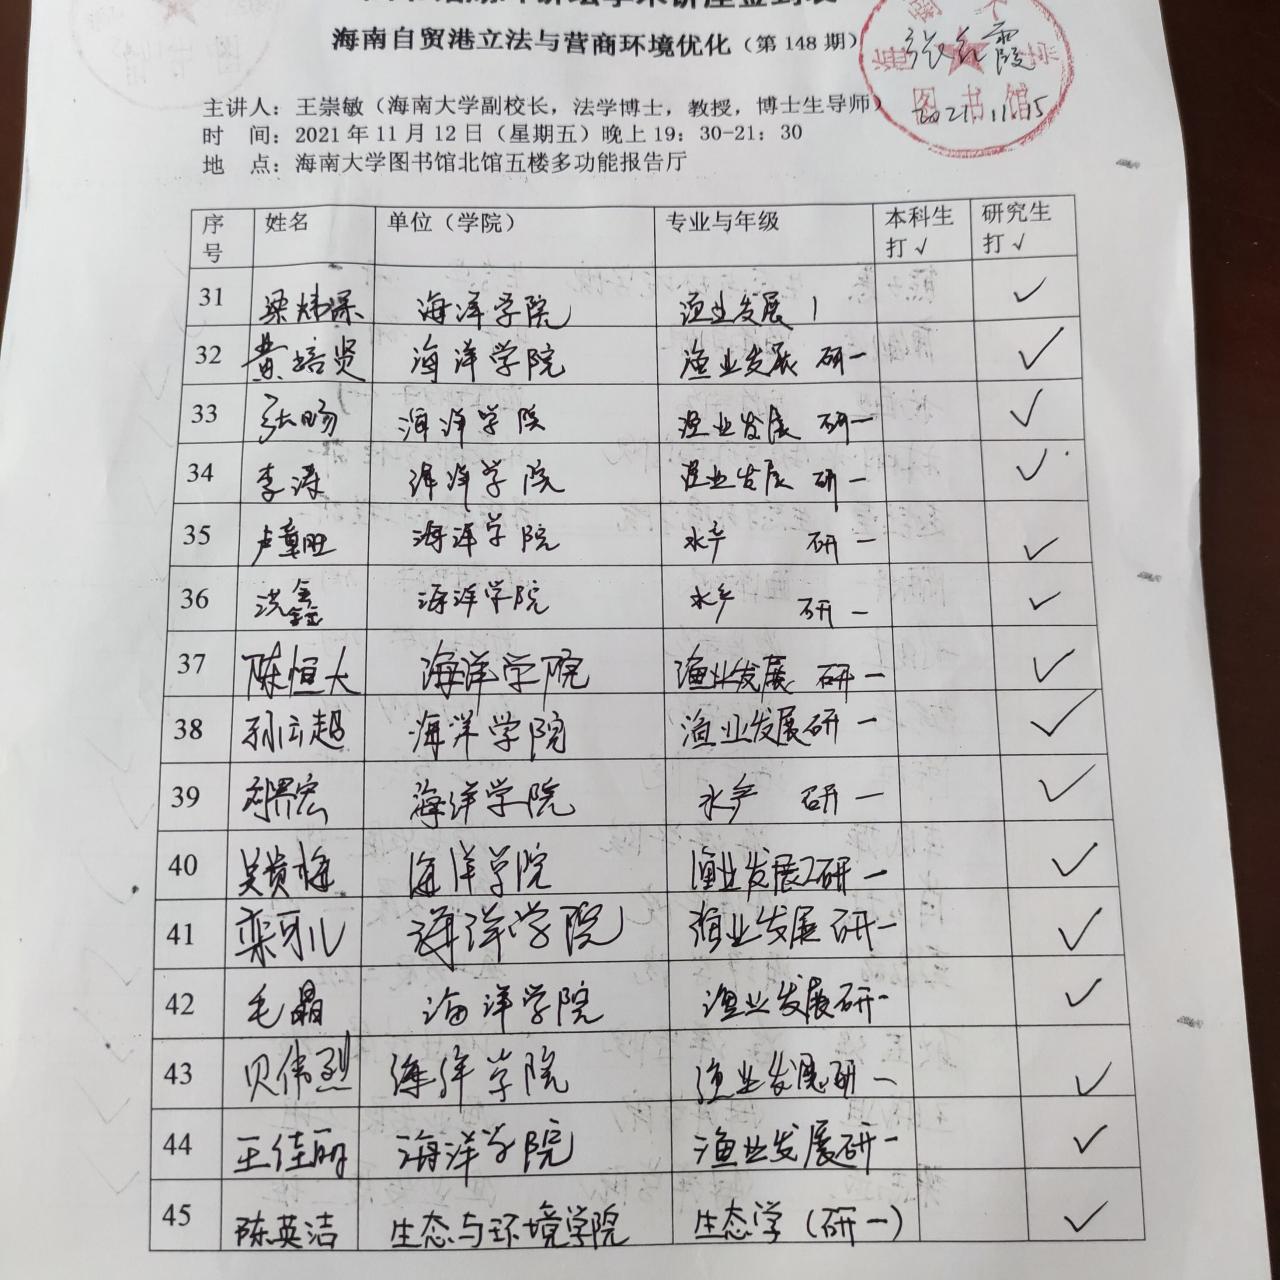 海南自贸港立法与营商环境优化（第 148 期）
主讲人：王崇敏（海南大学副校长，法学博士，教授，博士生导师）
时 间：2021 年 11 月 12 日（星期五）晚上 19：30-21：30
地 点：海南大学图书馆北馆五楼多功能报告厅
图书馆
2021.11.15
序号 姓名 单位（学院） 专业与年级 本科生打√ 研究生打√
31 梁炜深 海洋学院 渔业发展 1 ✓
32 黄培贤 海洋学院 渔业发展 研一 ✓
33 张旸 海洋学院 渔业发展 研一 ✓
34 李涛 海洋学院 渔业发展 研一 ✓
35 卢章旺 海洋学院 水产 研一 ✓
36 洪鑫 海洋学院 水产 研一 ✓
37 陈恒大 海洋学院 渔业发展 研一 ✓
38 孙云超 海洋学院 渔业发展研一 ✓
39 海洋学院 水产 研一 ✓
40 吴贵梅 海洋学院 渔业发展研一 ✓
41 栾可儿 海洋学院 渔业发展研一 ✓
42 毛晶 海洋学院 渔业发展研一 ✓
43 贝伟烈 海洋学院 渔业发展研一 ✓
44 王佳丽 海洋学院 渔业发展研一 ✓
45 陈英洁 生态与环境学院 生态学（研一） ✓